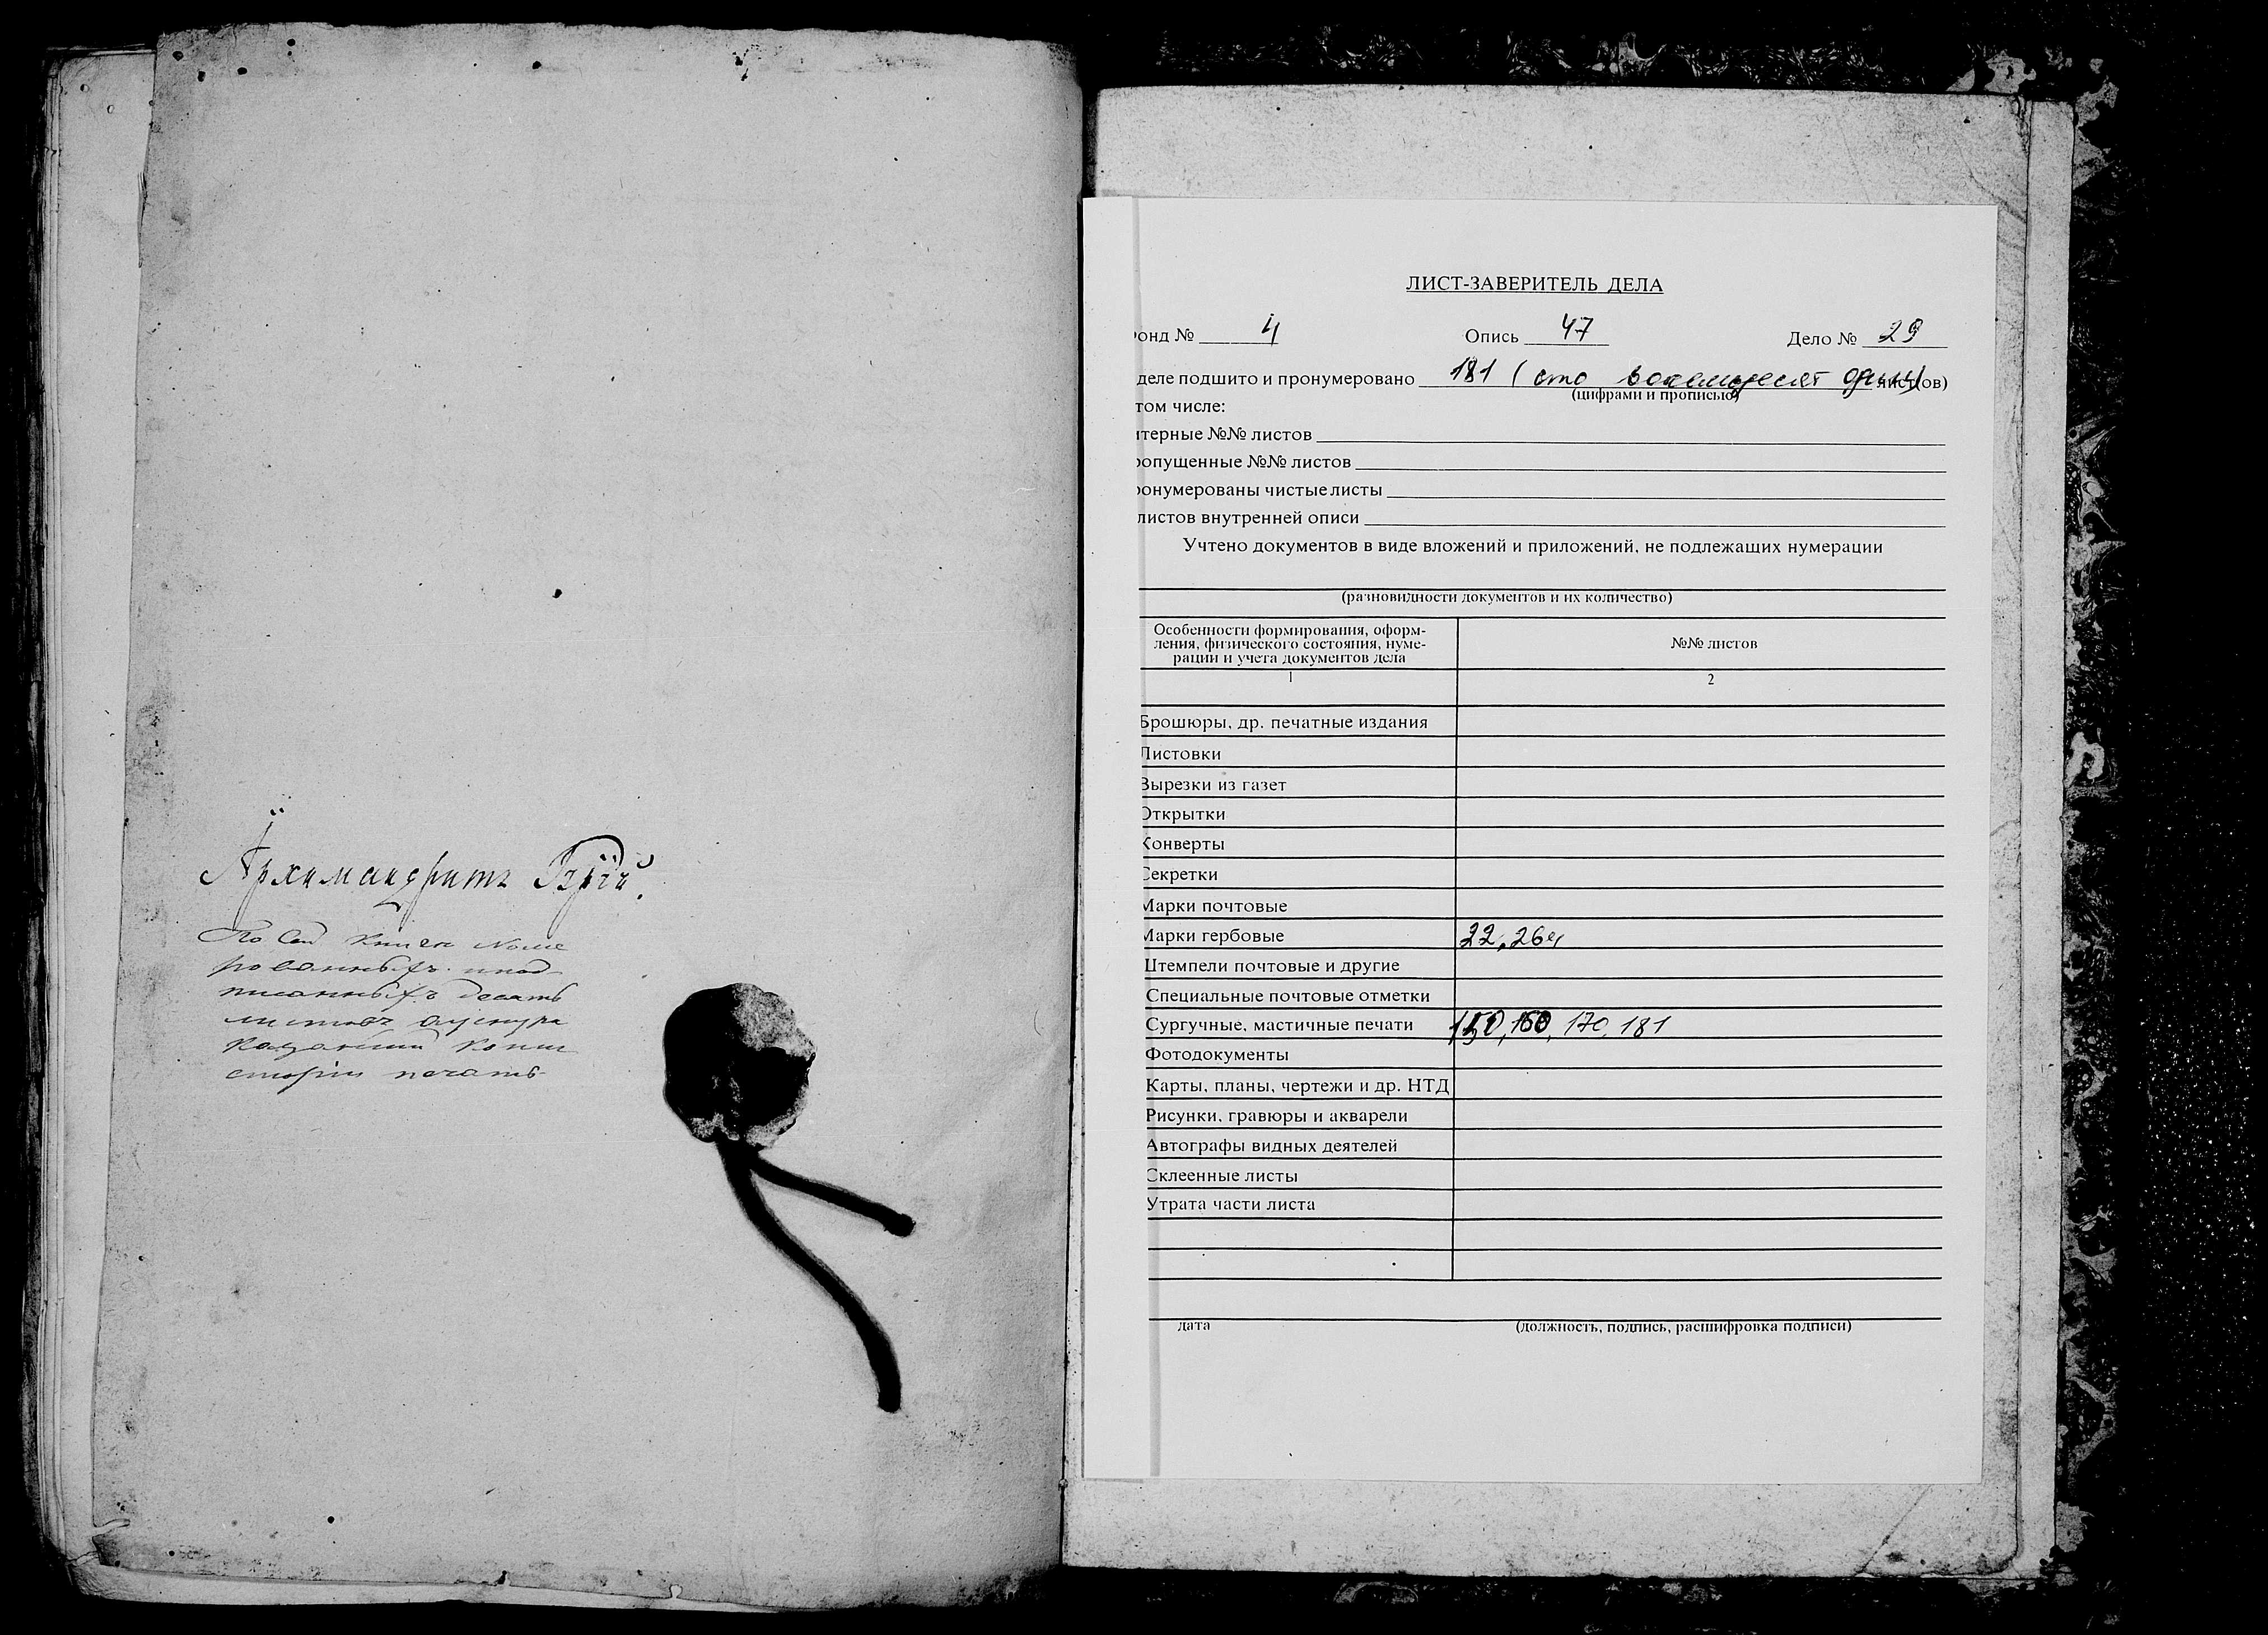 Архимандритъ Гурій.
По сей книги Номе
рованныхъ и под-
писанныхъ десать
листовъ
Казанской Конси
сторіи печать
ЛИСТ-ЗАВЕРИТЕЛЬ ДЕЛА
онд № 4 Опись 47 Дело № 29
деле подшито и пронумеровано 181 (сто восемьдесят один) лист(ов)
(цифрами и прописью)
том числе:
терные №№ листов
опущенные №№ листов
онумерованы чистые листы
листов внутренней описи
Учтено документов в виде вложений и приложений, не подлежащих нумерации
(разновидности документов и их количество)
Особенности формирования, оформ-
ления, физического состояния, нуме-
рации и учета документов дела
№№ листов
1 2
Брошюры, др. печатные издания
Листовки
Вырезки из газет
Открытки
Конверты
Секретки
Марки почтовые
Марки гербовые 22, 264
Штемпели почтовые и другие
Специальные почтовые отметки
Сургучные, мастичные печати 150, 160, 170, 181
Фотодокументы
Карты, планы, чертежи и др. НТД
Рисунки, гравюры и акварели
Автографы видных деятелей
Склеенные листы
Утрата части листа
дата (должность, подпись, расшифровка подписи)